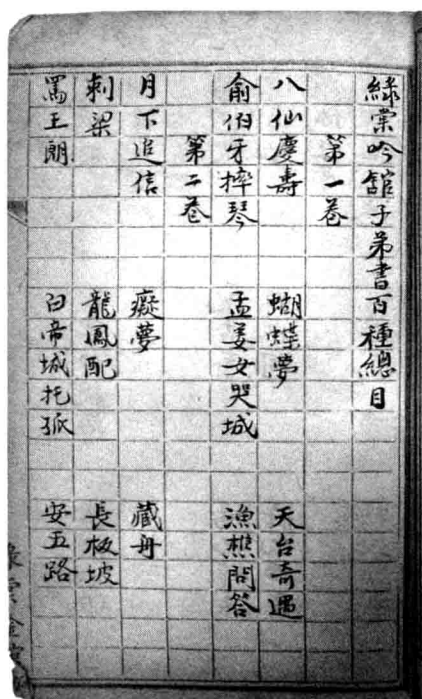 綠棠吟館子弟書百種總目
第一卷
八仙慶壽 蝴蝶夢 天台奇遇
俞伯牙摔琴 孟姜女哭城 漁樵問答
第二卷
月下追信 癡夢 藏舟
刺梁 龍鳳配 長板坡
罵王朗 白帝城托孤 安五路